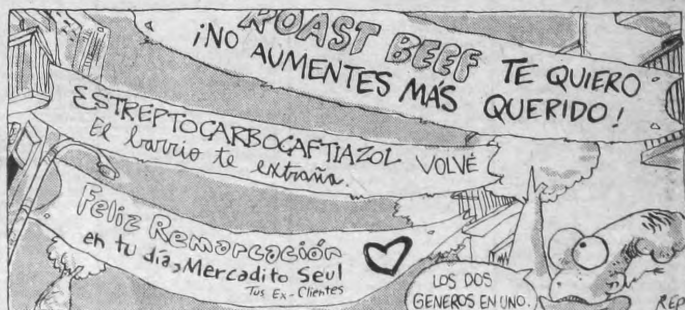 ROAST BEEF TE QUIERO
¡NO AUMENTES MÁS QUERIDO!
ESTREPTOCARBOCAFTIAZOL VOLVÉ
El barrio te extraña.
Feliz Remarcación
en tu día, Mercadito Seul
Tus Ex-Clientes
LOS DOS
GENEROS EN UNO.
REP